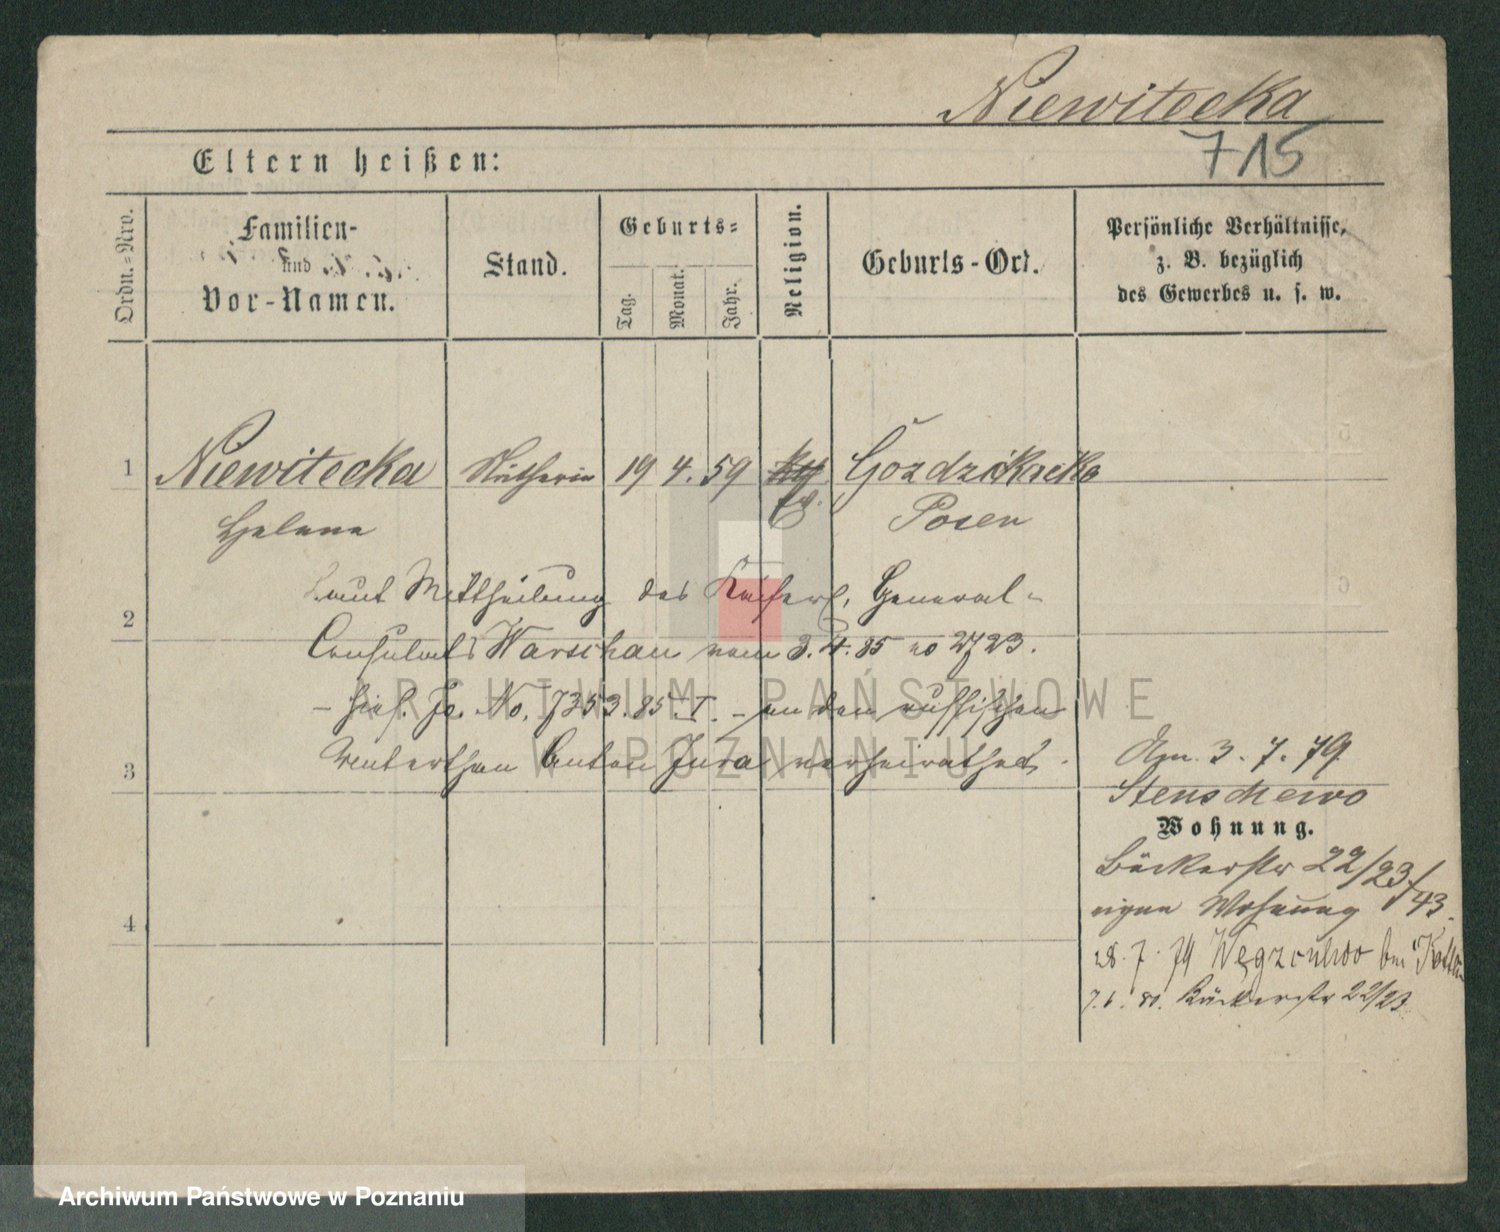 Niewitecka
715
Eltern heißen:
Ordn.-Nro.
Familien-
und
Vor-Namen.
Stand.
Geburts-
Tag.
Monat.
Jahr.
Religion.
Geburts-Ort.
Persönliche Verhältnisse,
z. B. bezüglich
des Gewerbes u. s. w.
1 Niewitecka Nätherin 19 4. 59
Helene Posen
Laut Mittheilung des Kaiserl. General-
2
Consulats Warschau vom 3. 4. 85 no 2723.
- hies. Jr. No. 7353. 85. I. - an den russischen
Unterthan Anton Jura verheirathet.
3
Am. 3. 7. 79
Stenschewo
Wohnung.
Bäckerstr 22/23/43.
eigne Wohnung
4
28. 7. 79 bei
7. 6. 80. Bäckerstr 22/23.
ARCHIWUM PAŃSTWOWE
W POZNANIU
Archiwum Państwowe w Poznaniu